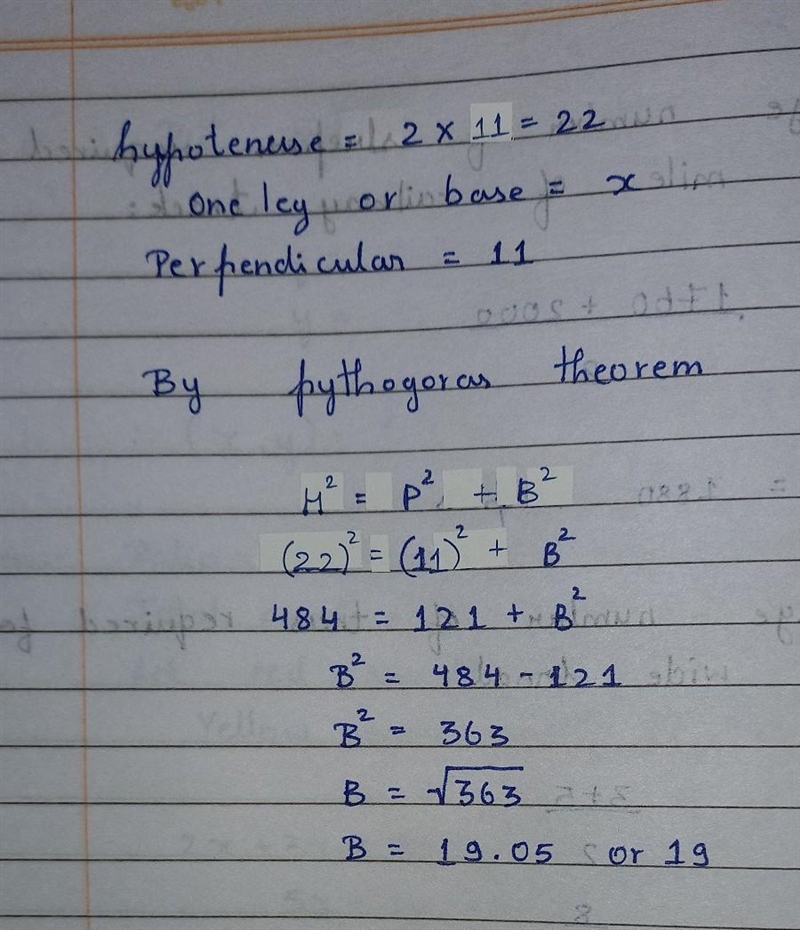 hypotenuse = 2 × 11 = 22
one leg or base = x
Perpendicular = 11
By pythogoras theorem
H² = P² + B²
(22)² = (11)² + B²
484 = 121 + B²
B² = 484 - 121
B² = 363
B = √363
B = 19.05 or 19